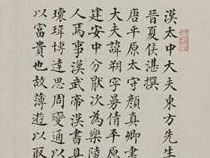 漢太中大夫東方先生
晉夏侯湛撰
唐平原太守顏真卿書
大夫諱朔字曼倩平原
建安中分厭次為樂陵
人焉事漢武帝漢書具
瓌瑋博達思周變通以
以富貴也故薄遊以取